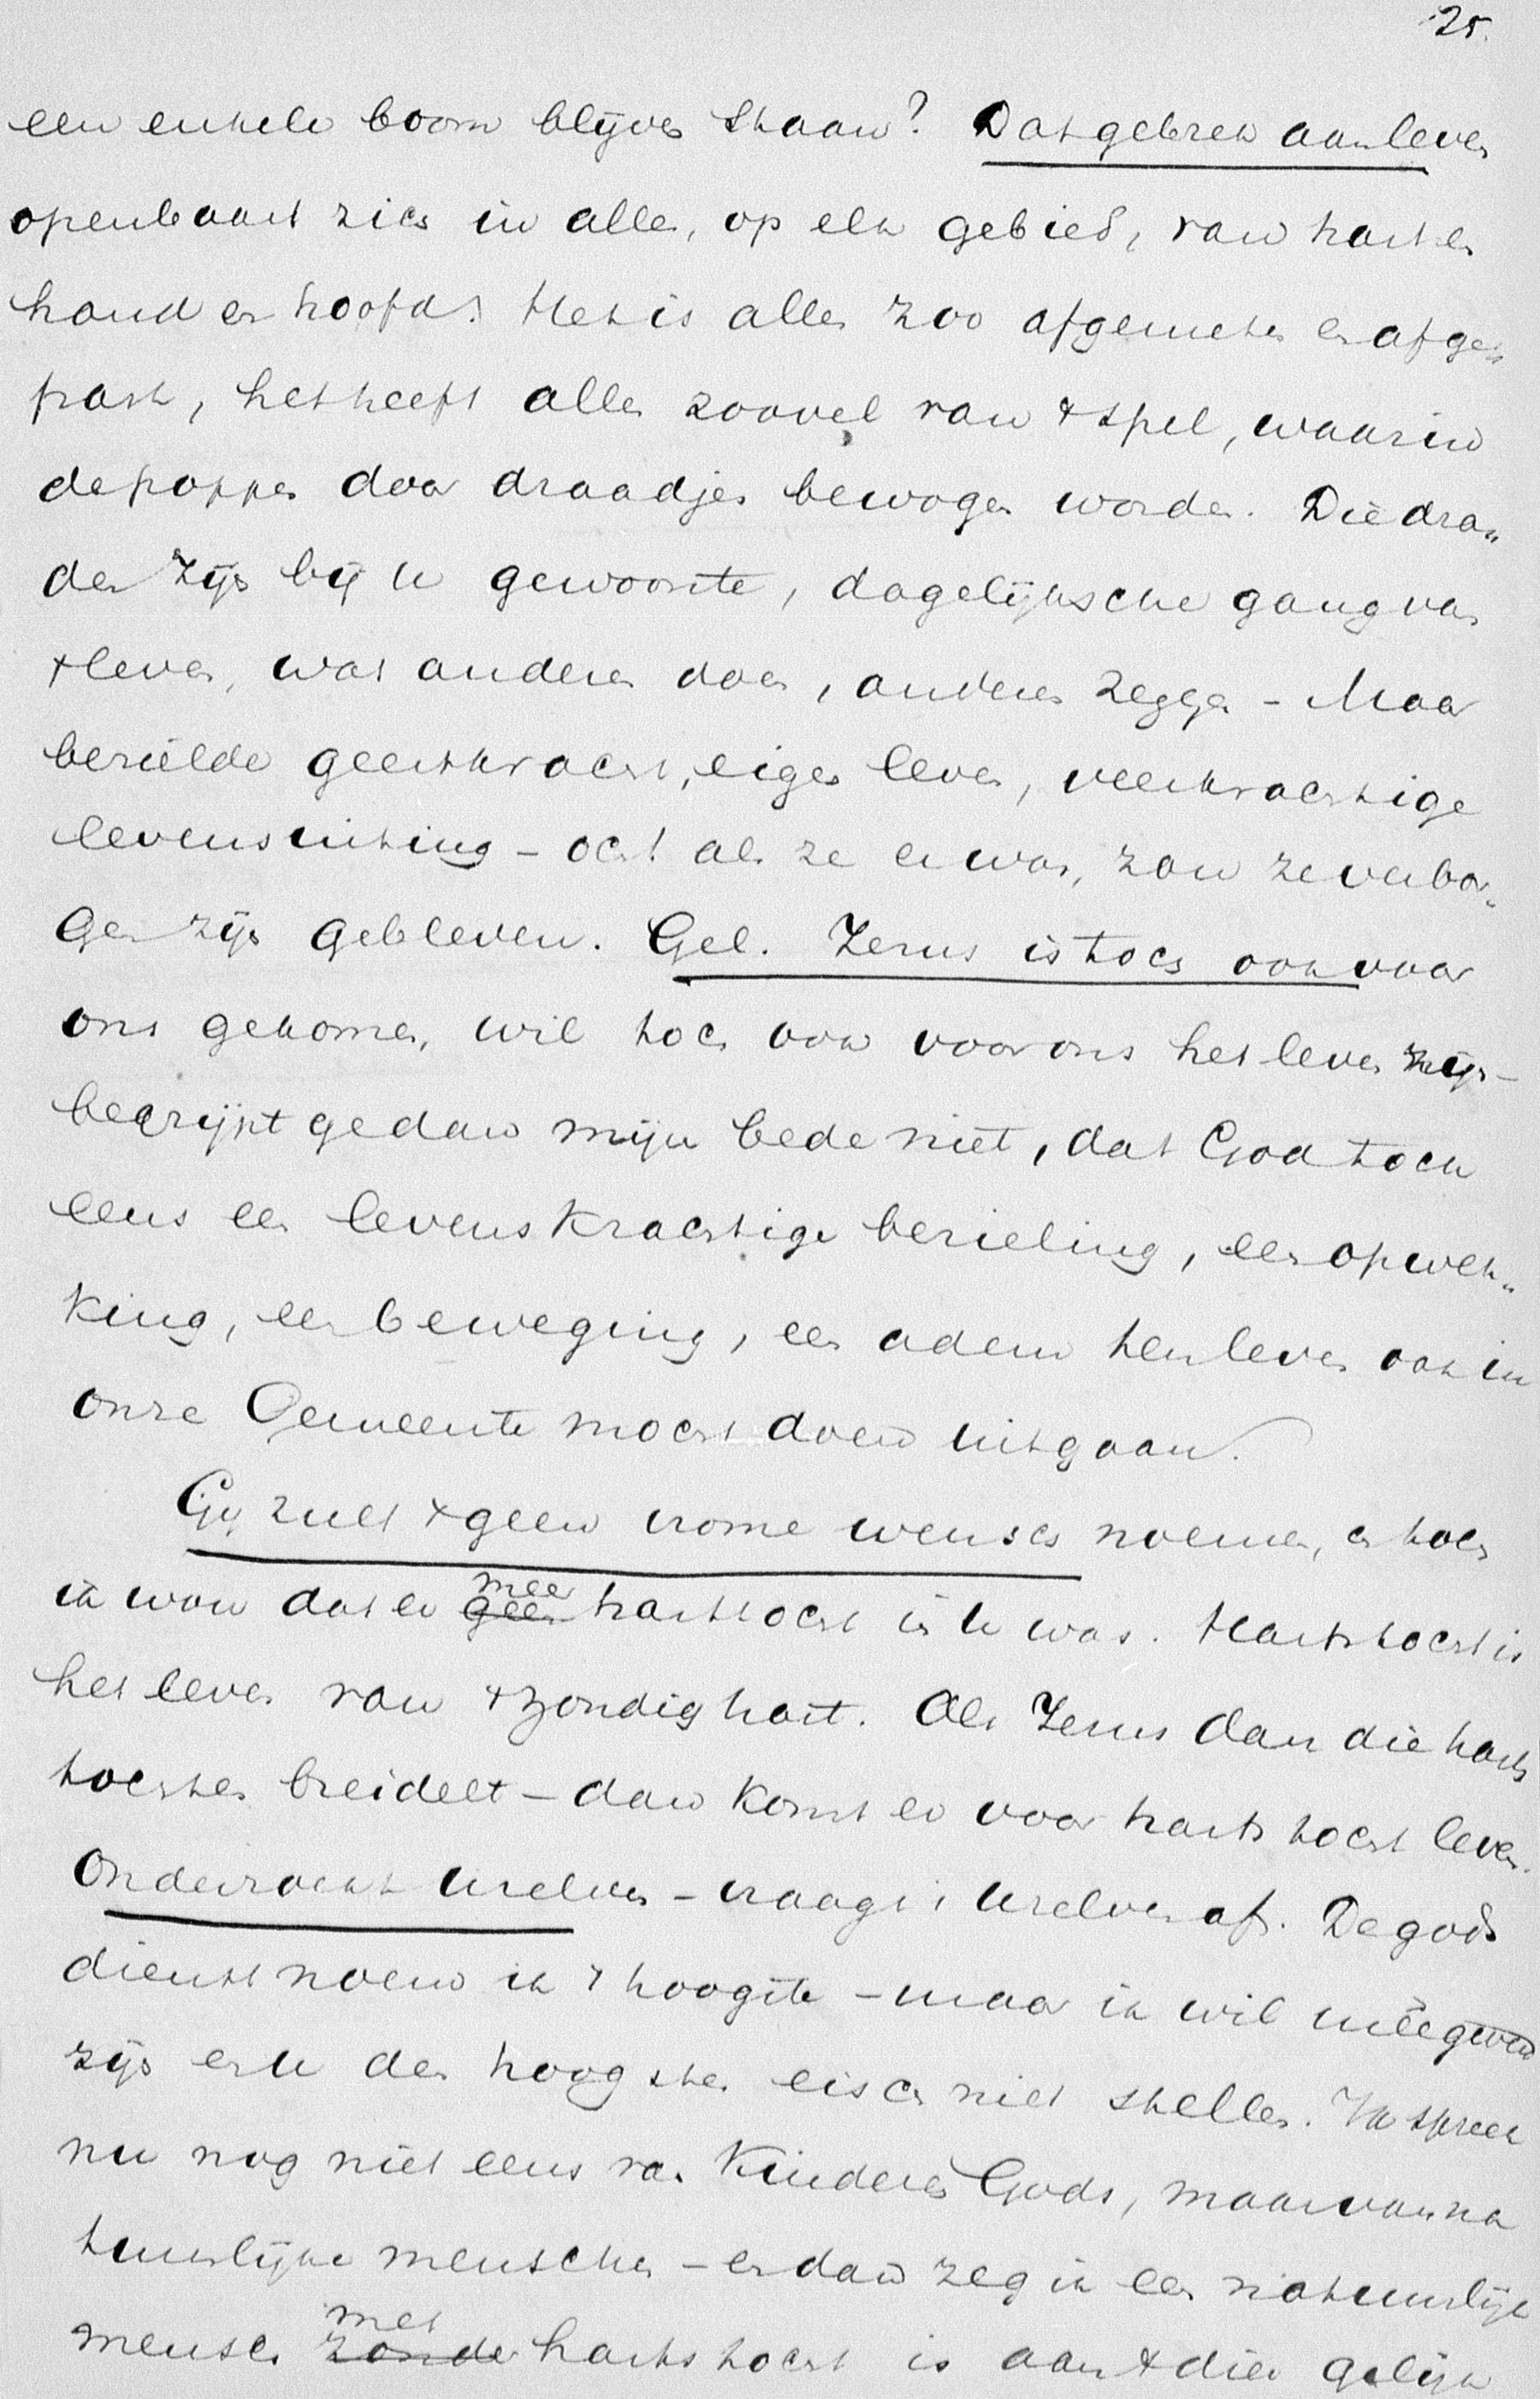 25.
een enkele boom blijven staan? Dat gebrek aan leven
openbaart zich in alles, op elk gebied, van hart en
hand en hoofd. Het is alles zoo afgemeten en afge-
past, het heeft alles zooveel van 't spel, waarin
de poppen door draadjes bewogen worden. Die dra-
den zijn bij U gewoonte, dagelijksche gang van
't leven, wat anderen doen, anderen zeggen - Maar
bezielde geestkracht, eigen leven, veerkrachtige
levensuiting - och! als ze er was, zou ze verbor-
gen zijn gebleven. Gel. Jezus is toch ook voor
ons gekomen, wil toch ook voor ons het leven zijn -
begrijpt ge dan mijn bede niet, dat God toch
eens een levenskrachtige bezieling, een opwek-
king, een beweging, een adem ten leven ook in
onze Gemeente mocht doen uitgaan.
Gij zult 't geen vrome wensch noemen, en toch
ik wou dat er meer geen hartstocht in U was. Hartstocht is
het leven van 't zondig hart. Als Jezus dan die harts
tochten breidelt - dan komt er voor hartstocht leven.
Onderzoekt Uzelven - vraagt 't Uzelven af. De gods
dienst noem ik 't hoogste - maar ik wil meegaand
zijn en U den hoogsten eisch niet stellen. Ik spreek
nu nog niet eens van Kinderen Gods, maar van na
tuurlijke menschen - en dan zeg ik een natuurlijk
mensch met zonder hartstocht is aan 't dier gelijk